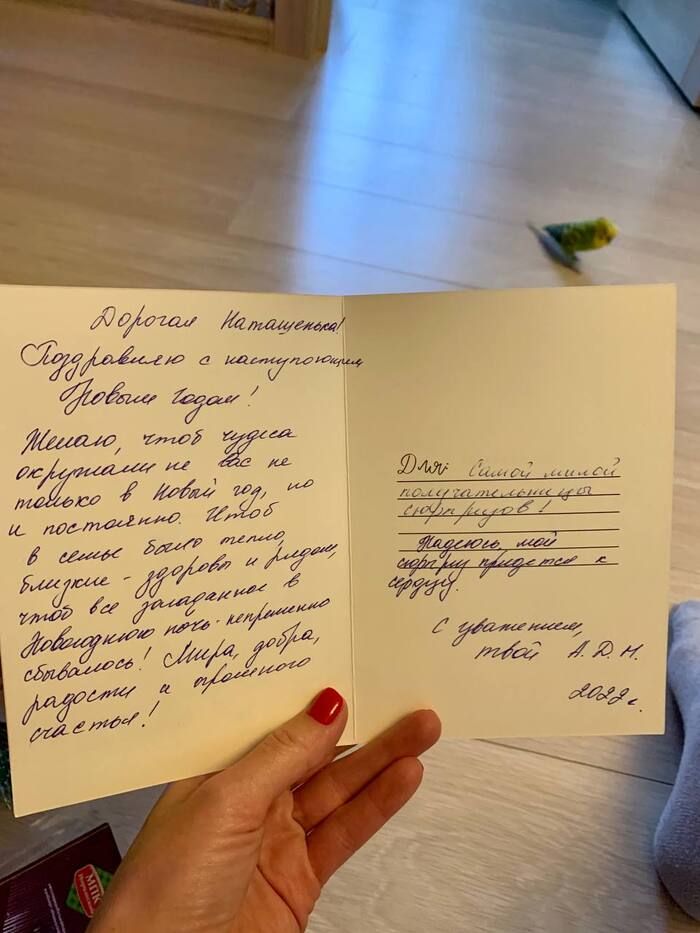 Дорогая Наташенька!
Поздравляю с наступающим
Новым годом!
Желаю, чтоб чудеса
окружали не Вас не
только в Новый год, но
и постоянно. Чтоб
в семье было тепло,
близкие - здоровы и рядом,
чтоб все загаданное в
Новогоднюю ночь - непременно
сбывалось! Мира, добра,
радости и огромного
счастья!
Для: Самой милой
получательницы
сюрпризов!
Надеюсь, мой
сюрприз придется к
сердцу.
С уважением,
твой А.Д.М.
2022г.
МПК